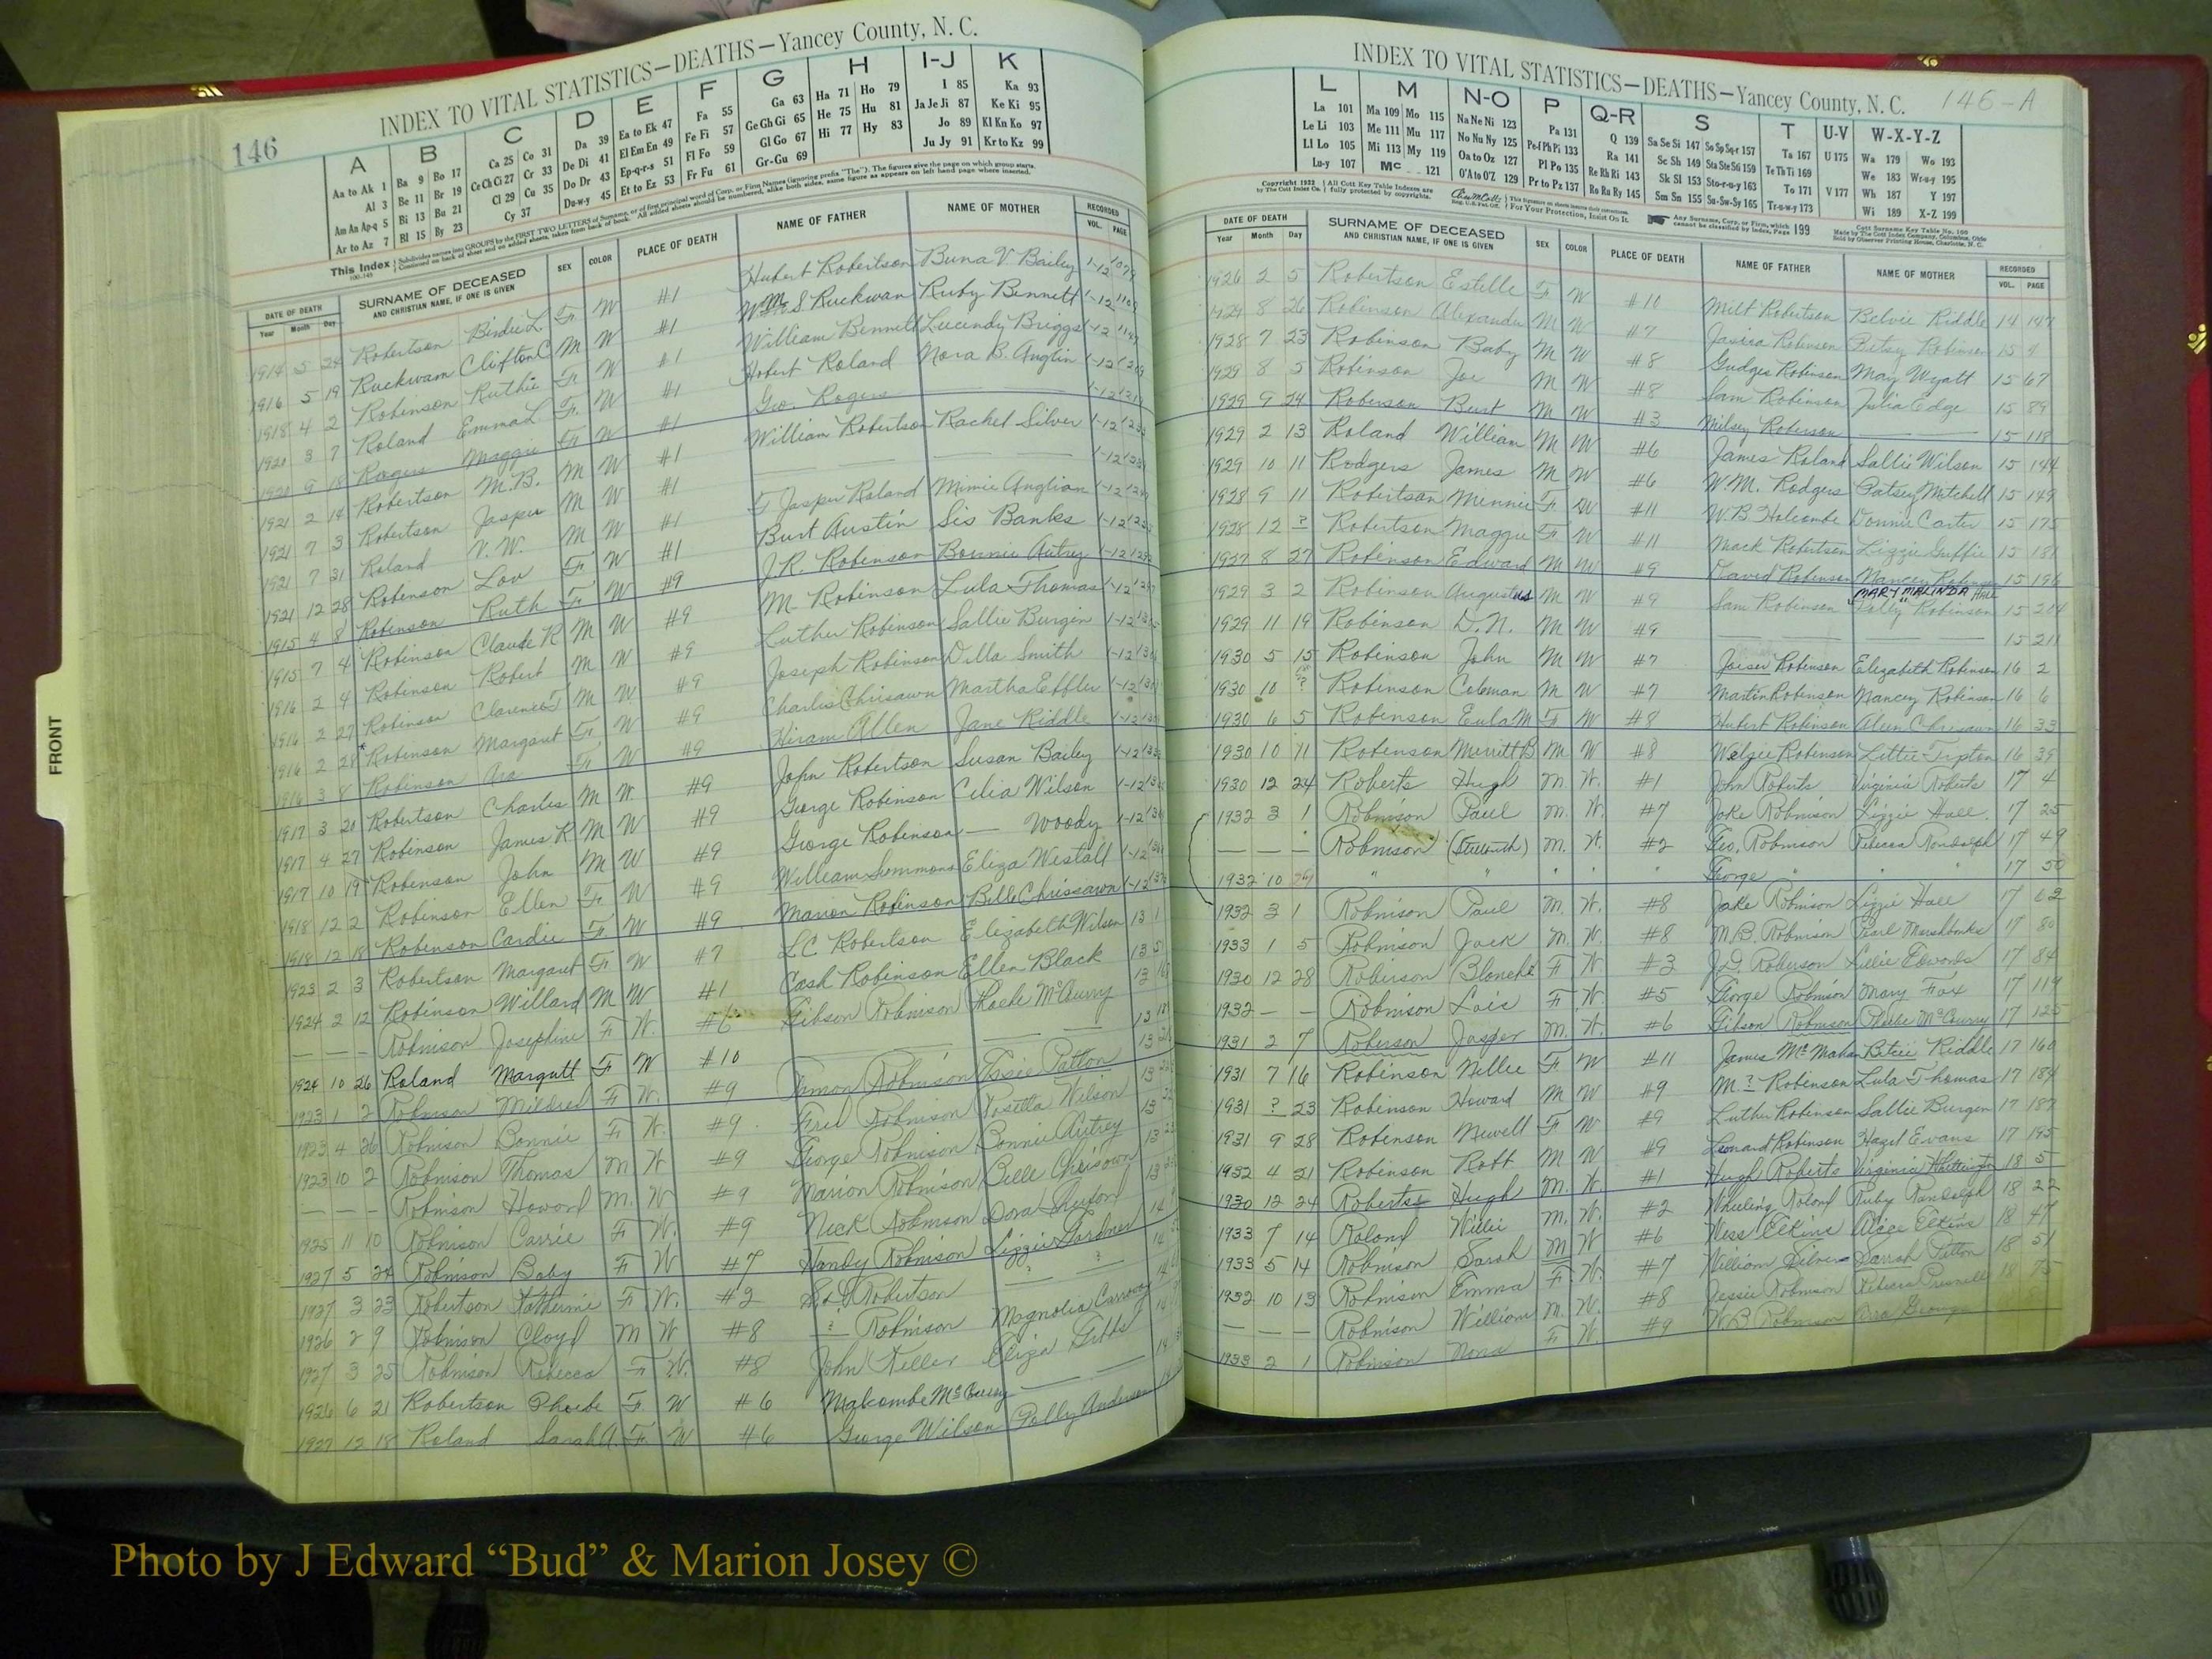 146
INDEX TO VITAL STATISTICS—DEATHS—Yancey County, N. C.
A B C D E F G H I-J K
Aa to Ak 1 Ba 9 Bo 17 Ca 25 Co 31 Da 39 Ea to Ek 47 Fa 55 Ga 63 Ha 71 Ho 79 I 85 Ka 93
Al 3 Be 11 Br 19 Ce Ch Ci 27 Cr 33 De Di 41 El Em En 49 Fe Fi 57 Ge Gh Gi 65 He 75 Hu 81 Ja Je Ji 87 Ke Ki 95
Am An Ap-q 5 Bi 13 Bu 21 Cl 29 Cu 35 Do Dr 43 Ep-q-r-s 51 Fl Fo 59 Gl Go 67 Hi 77 Hy 83 Jo 89 Kl Kn Ko 97
Ar to Az 7 Bl 15 By 23 Cy 37 Du-w-y 45 Et to Ez 53 Fr Fu 61 Gr-Gu 69 Ju Jy 91 Kr to Kz 99
DATE OF DEATH SURNAME OF DECEASED SEX COLOR PLACE OF DEATH NAME OF FATHER NAME OF MOTHER RECORDED
Year Month Day AND CHRISTIAN NAME, IF ONE IS GIVEN VOL. PAGE
1914 5 24 Robertson Birdie L F W #1 Hubert Robertson Buna V Bailey 1-12
1916 5 19 Ruckwam Clifton C M W #1 S Ruckwam Ruby Bennett 1-12
1918 4 2 Robinson Ruthie F W #1 William Bennett Lucendy Briggs 1-12
1920 3 7 Roland Emma L F W #1 Hobert Roland Nora B. Anglin 1-12
9 18 Rogers Maggie F W #1 Geo. Rogers — 1-12
1921 2 14 Robertson M.B. M W #1 William Robertson Rachel Silver 1-12
1921 7 3 Robertson Jasper M W #1 — — 1-12
1921 7 31 Roland V.W. M W #1 Jasper Roland Mimie Anglian 1-12
1921 12 28 Robinson Lou F W #1 Burt Austin Sis Banks 1-12
1915 4 8 Robinson Ruth F W #9 J.R. Robinson Bonnie Autrey 1-12
1915 7 4 Robinson Claude R M W #9 M Robinson Lula Thomas 1-12
1916 2 4 Robinson Robert M W #9 Luther Robinson Sallie Burgin 1-12
1916 2 27 Robinson Clarence F M W #9 Joseph Robinson Della Smith 1-12
1916 2 28 Robinson Margaret F W #9 Charlie Chrisawn Martha Effler 1-12
1916 3 8 Robinson Ara F W #9 Hiram Allen Jane Riddle 1-12
1917 3 20 Robertson Charles M W #9 John Robertson Susan Bailey 1-12
1917 4 27 Robinson James R M W #9 George Robinson Celia Wilson 1-12
1917 10 19 Robinson John M W #9 George Robinson — Woody 1-12
1918 12 2 Robinson Ellen F W #9 William Simmons Eliza Westall 1-12
1918 12 18 Robinson Cardie F W #9 Marion Robinson Belle Chrissawn 1-12
1923 2 3 Robertson Margaret F W #7 L.C. Robertson Elizabeth Wilson 13 1
1924 2 12 Robinson Willard M W #1 Cash Robinson Ellen Black 13
— — — Robinson Josephine F W. #6 Gibson Robinson Phoebe McCurry 13
1924 10 26 Roland Margutt F W #10 — — 13
1923 1 2 Robinson Mildred F W. #9 Robinson Essie Patton 13
1923 4 26 Robinson Bonnie F W. #9 Fred Robinson Rosetta Wilson 13
1923 10 2 Robinson Thomas M W #9 George Robinson Bonnie Autrey 13
— — — Robinson Howard M. W #9 Marion Robinson Belle Chrisawn 13
1925 11 10 Robinson Carrie F W. #9 Nick Robinson Dora 14
1927 5 24 Robinson Baby F W #7 Handy Robinson Lizzie Gardner 14
1927 3 23 Robertson Katherine F W. #2 Robertson ? ? 14
1926 2 9 Robinson Cloyd M W #8 ? Robinson Magnolia 14
1927 3 25 Robinson Rebecca F W. #8 John Keller Eliza Gibbs 14
1926 6 21 Robertson Phoebe F W #6 Malcombe McCurry — 14
1927 12 18 Roland Sarah A. F W #6 George Wilson Polly Anderson
FRONT
INDEX TO VITAL STATISTICS—DEATHS—Yancey County, N. C. 146-A
L M N-O P Q-R S T U-V W-X-Y-Z
La 101 Ma 109 Mo 115 Na Ne Ni 123 Pa 131 Q 139 Sa Se Si 147 So Sp Sq-r 157 Ta 167 U 175 Wa 179 Wo 193
Le Li 103 Me 111 Mu 117 No Nu Ny 125 Pe-f Ph Pi 133 Ra 141 Sc Sh 149 Sta Ste Sti 159 Te Th Ti 169 We 183 Wr-u-y 195
Ll Lo 105 Mi 113 My 119 Oa to Oz 127 Pl Po 135 Re Rh Ri 143 Sk Sl 153 Sto-r-u-y 163 To 171 V 177 Wh 187 Y 197
Lu-y 107 Mc 121 O'A to O'Z 129 Pr to Pz 137 Ro Ru Ry 145 Sm Sn 155 Su-Sw-Sy 165 Tr-u-w-y 173 Wi 189 X-Z 199
DATE OF DEATH SURNAME OF DECEASED SEX COLOR PLACE OF DEATH NAME OF FATHER NAME OF MOTHER RECORDED
Year Month Day AND CHRISTIAN NAME, IF ONE IS GIVEN VOL. PAGE
1926 2 5 Robertson Estelle F W #10 Milt Robertson Belvie Riddle 14 147
8 26 Robinson Alexander M W #7 Robinson Betsy Robinson 15 4
1928 7 23 Robinson Baby M W #8 Gudger Robinson May Wyatt 15 67
1929 8 5 Robinson Joe M W #8 Sam Robinson Julia Edge 15 89
1929 9 24 Roberson Burt M W #3 Milsey Roberson — 15 118
1929 2 13 Roland William M W #6 James Roland Sallie Wilson 15 144
1929 10 11 Rodgers James M W #6 W.M. Rodgers Patsey Mitchell 15 149
1928 9 11 Robertson Minnie F W #11 W.B. Holcombe Donnie Carter 15 175
1928 12 ? Robertson Maggie F W #11 Mack Robertson Lizzie Guffie 15 181
8 27 Robinson Edward M W #9 David Robinson Nancy Robinson 15 196
MARY MALINDA HALL
1929 3 2 Robinson Augustus M W #9 Sam Robinson "Polly" Robinson 15 204
1929 11 19 Robinson D.N. M W #9 — — 15 211
1930 5 15 Robinson John M W #7 Robinson Elizabeth Robinson 16 2
1930 10 ? Robinson Coleman M W #7 Martin Robinson Nancy Robinson 16 6
1930 6 5 Robinson Eula M F W #8 Hubert Robinson Chrisawn 16 33
1930 10 11 Robinson Merritt B M W #8 Welzie Robinson Littie Tipton 16 39
1930 12 24 Roberts Hugh M. W. #1 John Roberts Virginia Roberts 17 4
1932 3 1 Robinson Paul M. W. #7 Jake Robinson Lizzie Hall 17 25
— — — Robinson (Stillbirth) M. W. #2 Geo. Robinson Rebecca Randolph 17 49
1932 10 29 " " " " " George " " " 17 50
1932 3 1 Robinson Paul M. W. #8 Jake Robinson Lizzie Hall 17 62
1933 1 5 Robinson Jack M. W. #8 M.B. Robinson Pearl Marshbanks 17 80
1930 12 28 Roberson Blanche F W #3 J.D. Roberson Lillie Edwards 17 84
1932 — — Robinson Lois F W. #5 George Robinson Mary Fox 17 119
1931 2 7 Roberson Jasper M. W. #6 Gibson Robinson Phoebe McCurry 17 125
1931 7 16 Robinson Nellie F W #11 James McMahan Betsie Riddle 17 160
1931 ? 23 Robinson Howard M W #9 M ? Robinson Lula Thomas 17 184
1931 9 28 Robinson Newell F W #9 Luther Robinson Sallie Burgin 17 187
1932 4 21 Robinson Robt M W #9 Leonard Robinson Hazel Evans 17 195
1930 12 24 Roberts Hugh M. W. #1 Hugh Roberts Virginia Whittington 18 5
1933 7 14 Roland Willie M. W. #2 Wheeling Roland Ruby Randolph 18 22
1933 5 14 Robinson Sarah M W #6 Wess Elkins Alice Elkins 18 47
1932 10 13 Robinson Emma F W. #7 William Silvers Sarrah Patton 18 51
— — — Robinson William M. W. #8 Jessie Robinson Rebecca Presnell 18 75
1933 2 1 Robinson Nora F W. #9 W.B. Robinson Ora George
Photo by J Edward “Bud” & Marion Josey ©